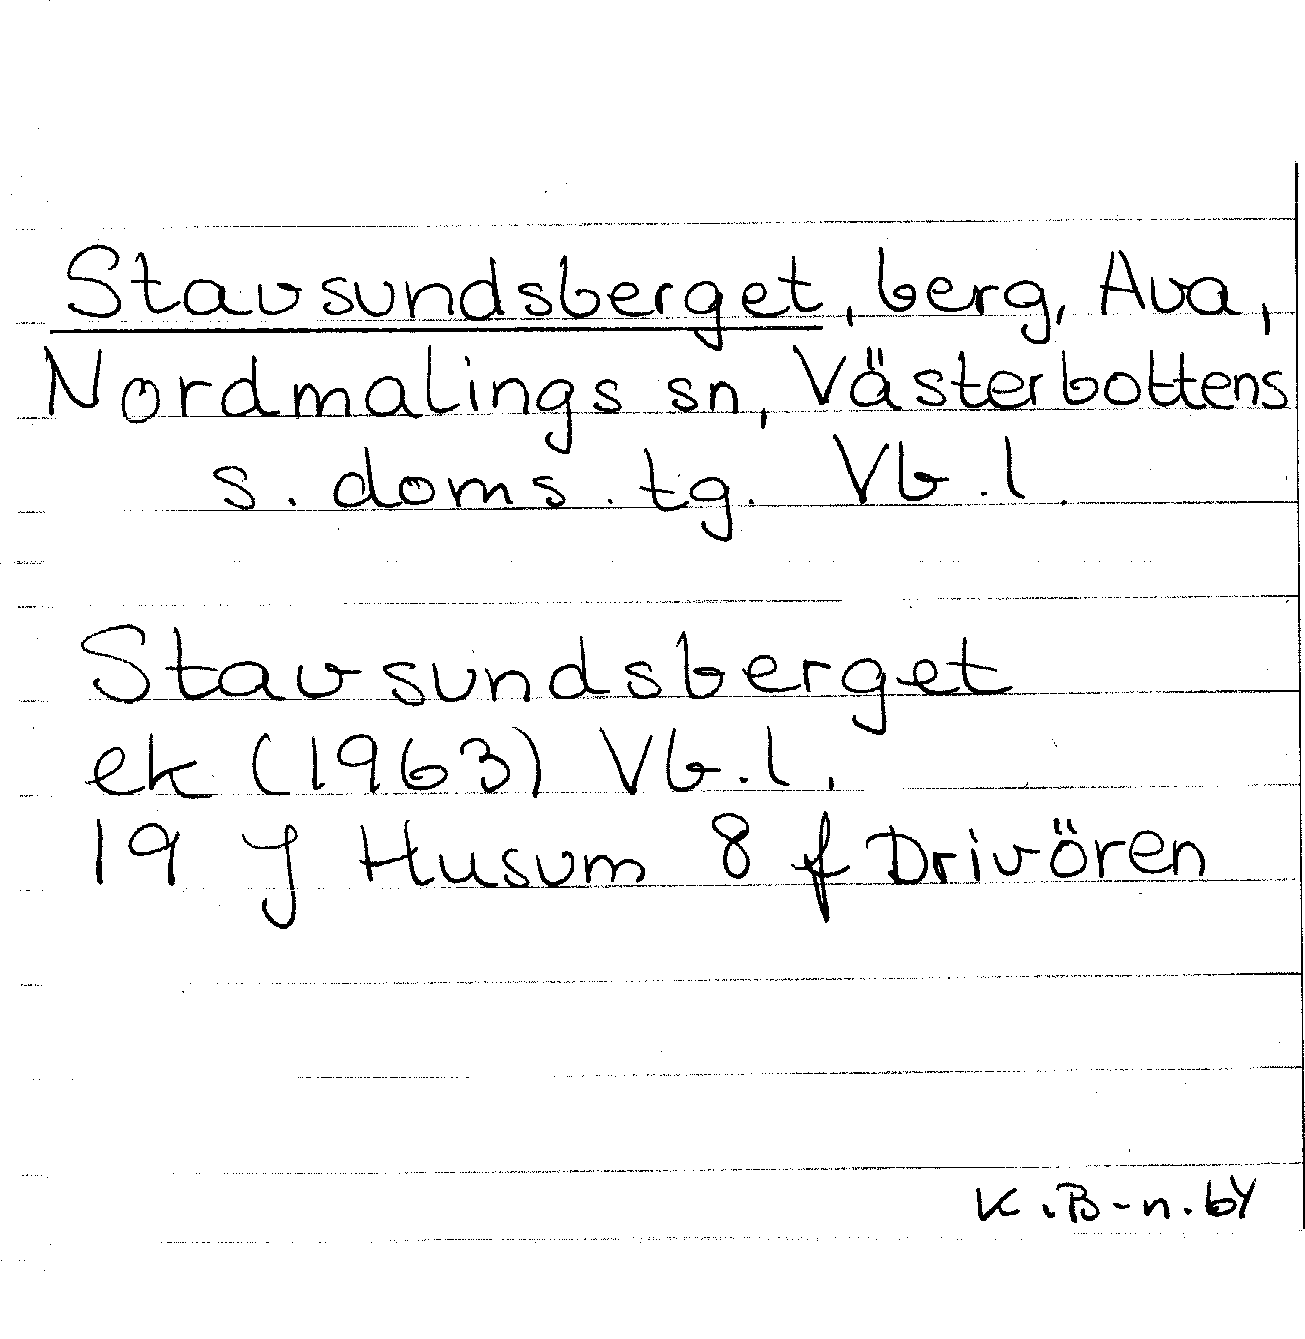 Stavsundsberget, berg, Ava,
Nordmalings sn, Västerbottens
s. doms. tg. Vb. l.
Stavsundsberget
ek (1963) Vb. l.
19 J Husum 8 f Drivören
K.B-n. 64